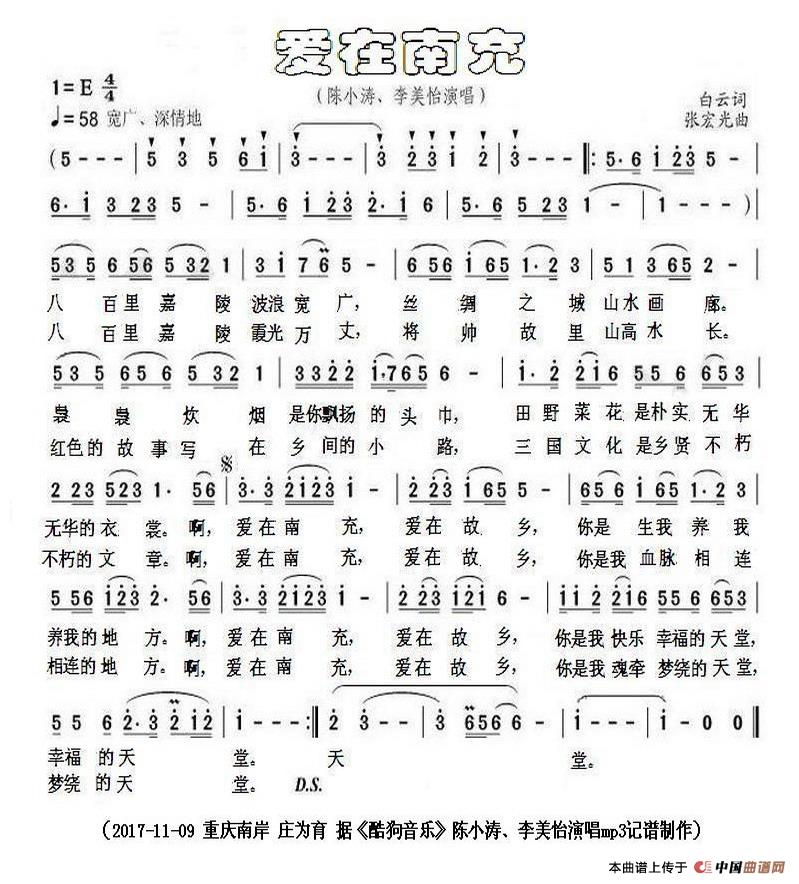 爱在南充
1=E 4/4
(陈小涛、李美怡演唱)
白云词
♩=58 宽广、深情地
张宏光曲
八 百里嘉 陵 波浪 宽 广, 丝 绸 之 城 山水 画 廊。
八 百里嘉 陵 霞光 万 丈, 将 帅 故 里 山高 水 长。
袅 袅 炊 烟 是你飘扬 的 头 巾, 田 野 菜 花 是朴实 无 华
红色的 故 事 写 在 乡 间的 小 路, 三 国 文 化 是乡贤 不 朽
无华的 衣 裳。啊, 爱 在 南 充, 爱 在 故 乡, 你是 生我 养 我
不朽的 文 章。啊, 爱 在 南 充, 爱 在 故 乡, 你是我 血脉 相 连
养我的 地 方。啊, 爱 在 南 充, 爱 在 故 乡, 你是我 快乐 幸福的 天 堂,
相连的 地 方。啊, 爱 在 南 充, 爱 在 故 乡, 你是我 魂牵 梦绕的 天 堂,
幸福 的 天 堂。 天 堂。
梦绕 的 天 堂。 D.S.
(2017-11-09 重庆南岸 庄为育 据《酷狗音乐》陈小涛、李美怡演唱mp3记谱制作)
本曲谱上传于 中国曲谱网